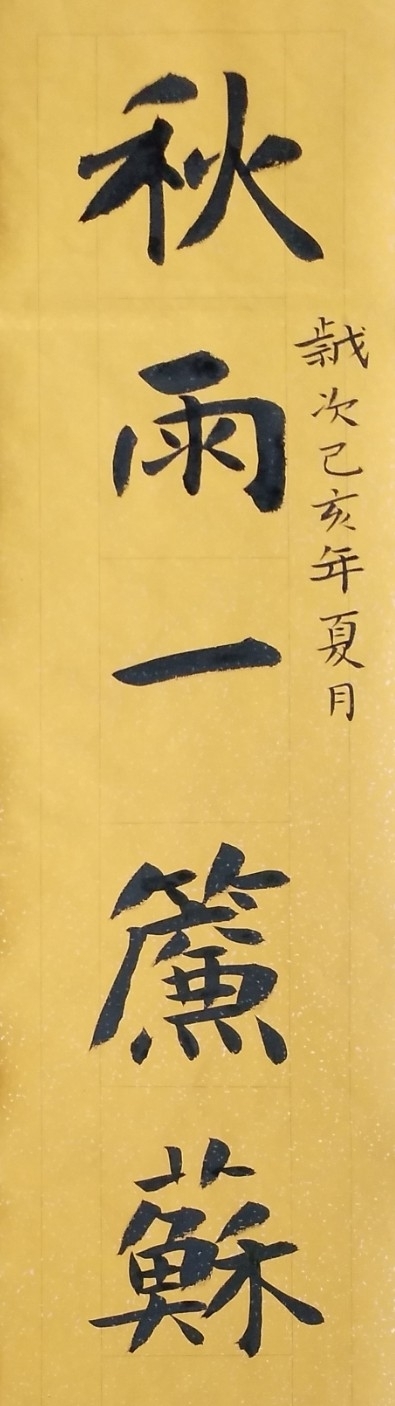 歲次己亥年夏月
秋雨一簾蘇